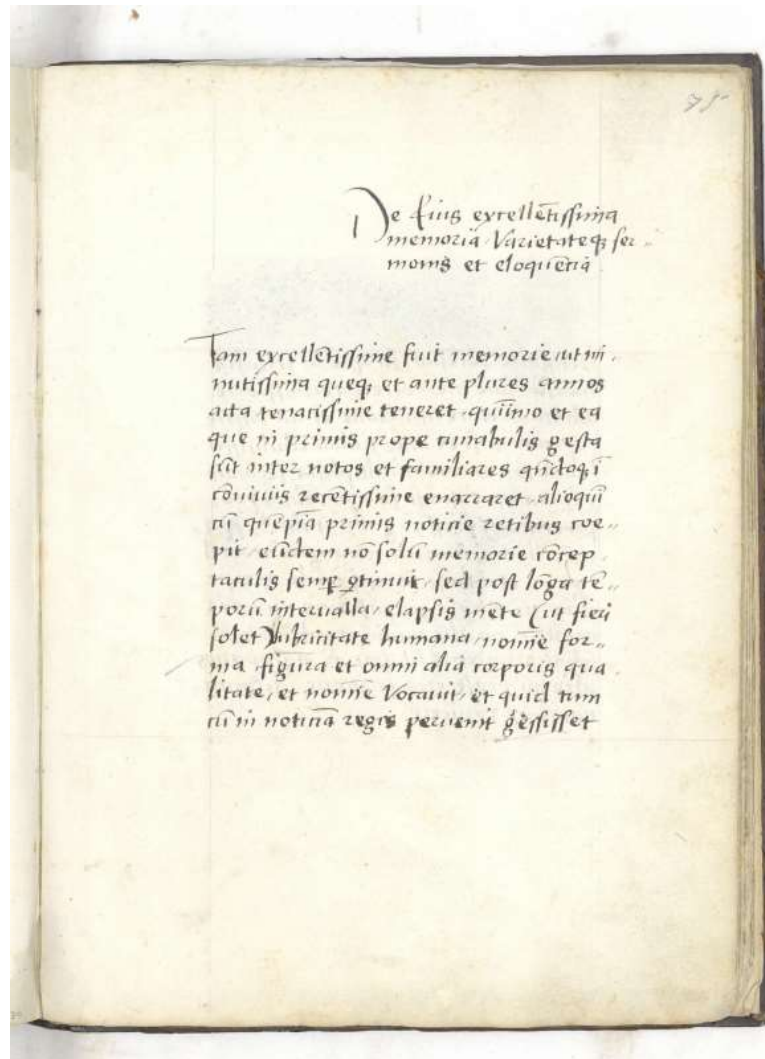 75
De Eius excellētissima
memoria Varietateq̧ ser„
monis et eloquētia
Tam excellētissime fuit memorie, ut mi„
nutissima queq̧ et ante plures annos
acta tenacissime teneret, quīimo et ea
que in primis prope cunabulis gesta
sūt inter notos et familiares qn̄doq̧ ī
cōviviis recētissime enarraret, alioquī
cū quēpiā primis noticie retibus coe„
pit, eūdem nō solū memorie cōcep„
taculis semꝑ ꝯtinuit, sed post lōga tē„
porū intervalla, elapsis mēte (ut fieri
solet) lubricitate humana, nomīe for„
ma, figura et omni alia corporis qua„
litate, et nomīe vocavit, et quid tum
cū in noticiā regis pervenit gessisset